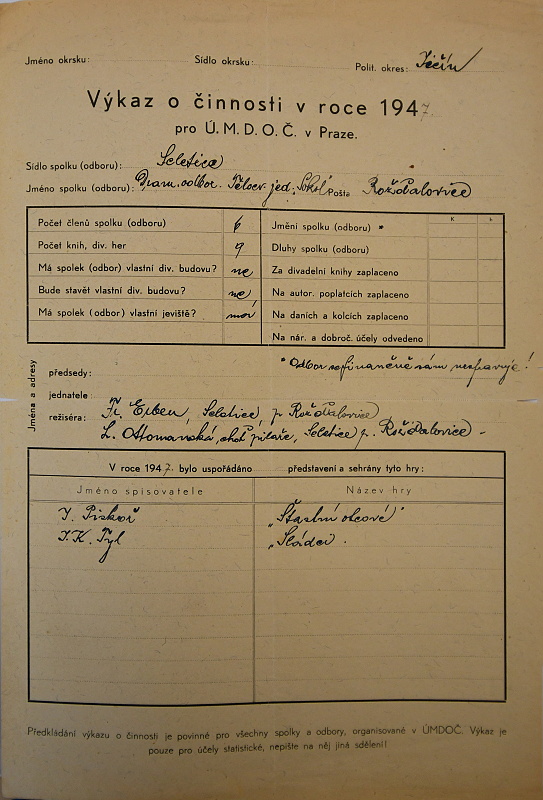 Jméno okrsku: Sídlo okrsku: Polit. okres: Jičín
Výkaz o činnosti v roce 1947.
pro Ú.M.D.O.Č. v Praze.
Sídlo spolku (odboru): Seletice
Jméno spolku (odboru): Dram. odbor. Tělocv. jed. Sokol Pošta Rožďalovice
Počet členů spolku (odboru) 6
Počet knih, div. her 9
Má spolek (odbor) vlastní div. budovu? ne
Bude stavět vlastní div. budovu? ne
Má spolek (odbor) vlastní jeviště? má
K h
Jmění spolku (odboru) *
Dluhy spolku (odboru)
Za divadelní knihy zaplaceno
Na autor. poplatcích zaplaceno
Na daních a kolcích zaplaceno
Na nár. a dobroč. účely odvedeno
* Odbor se finančně sám nespravuje!
Jména a adresy
předsedy:
jednatele
režiséra: Fr. Erben, Seletice, p. Rožďalovice
L. Otomanská, choť pilaře, Seletice p. Rožďalovice -
V roce 1947. bylo uspořádáno představení a sehrány tyto hry:
Jméno spisovatele Název hry
J. Piskoř "Šťastní otcové"
J. K. Tyl "Sládci.
Předkládání výkazu o činnosti je povinné pro všechny spolky a odbory, organisované v ÚMDOČ. Výkaz je
pouze pro účely statistické, nepište na něj jiná sdělení!